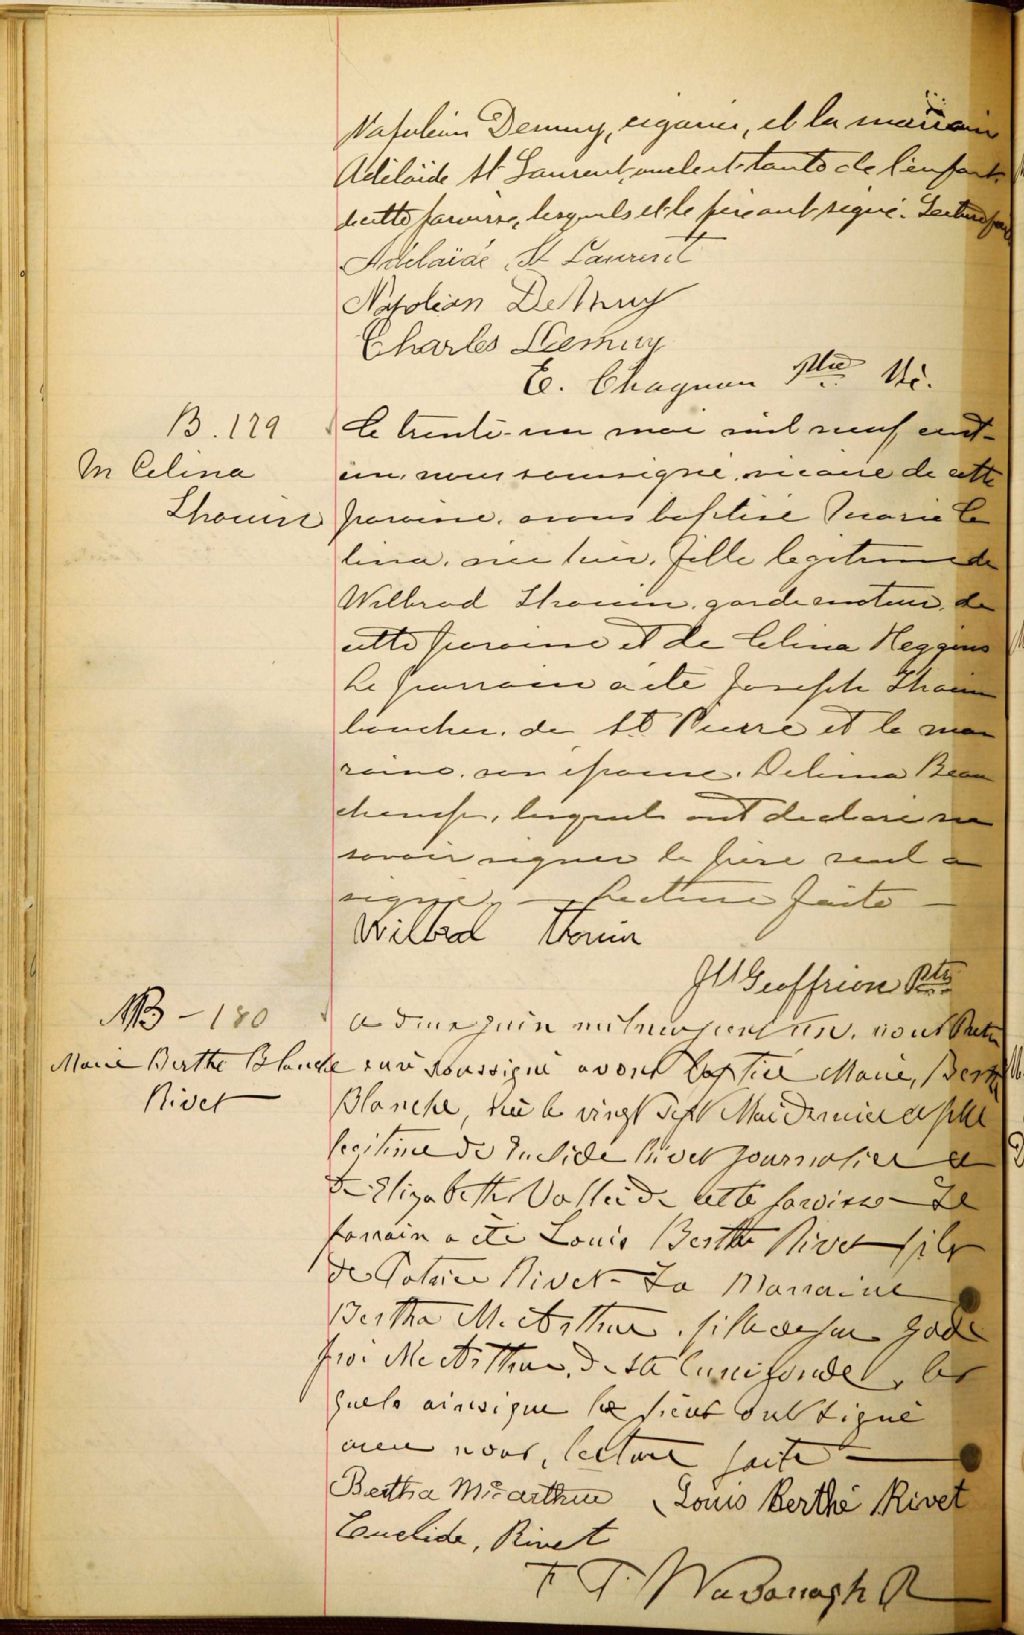 Napoléon Demuy, cigarier, et la marraine
Adélaïde St Laurent, oncle et tante de l'enfant,
de cette paroisse, lesquels et le père ont signé. Lecture faite
Adélaïdé St Laurent
Napoléon DeMuy
Charles Demuy
E. Chagnon Ptre Vic.
B. 179
M Celina
Thouin
Le trente-un mai mil neuf cent-
un, nous soussigné, vicaire de cette
paroisse, avons baptisé Marie Ce
lina, née hier, fille legitime de
Wilbrod Thouin, garde moteur, de
cette paroisse et de Celina Heggins
Le parrain a été Joseph Thouin
boucher, de St Pierre et la mar
raine, son épouse, Delima Beau
champ, lesquels ont declaré ne
savoir signer le père seul a
signé. — Lecture faite —
Wilbrod Thouin
Geoffrion Ptre
B – 180
Marie Berthe Blanche
Rivet
Le deux juin mil neuf cent un, nous Pretre
curé soussigné avons baptisé Marie, Berthe
Blanche, née le vingt sept Mai dernier fille
legitime de Euclide Rivet journalier et
de Elizabeth Vallée de cette paroisse – Le
parrain a été Louis Berthe Rivet fils
de Patrice Rivet – La Marraine
Bertha McArthur, fille de feu Gode
froi McArthur, de Ste Cunégonde, les
quels ainsi que le père ont signé
avec nous, lecture faite —
Bertha McArthur Louis Berthé Rivet
Euclide, Rivet
Kavanagh